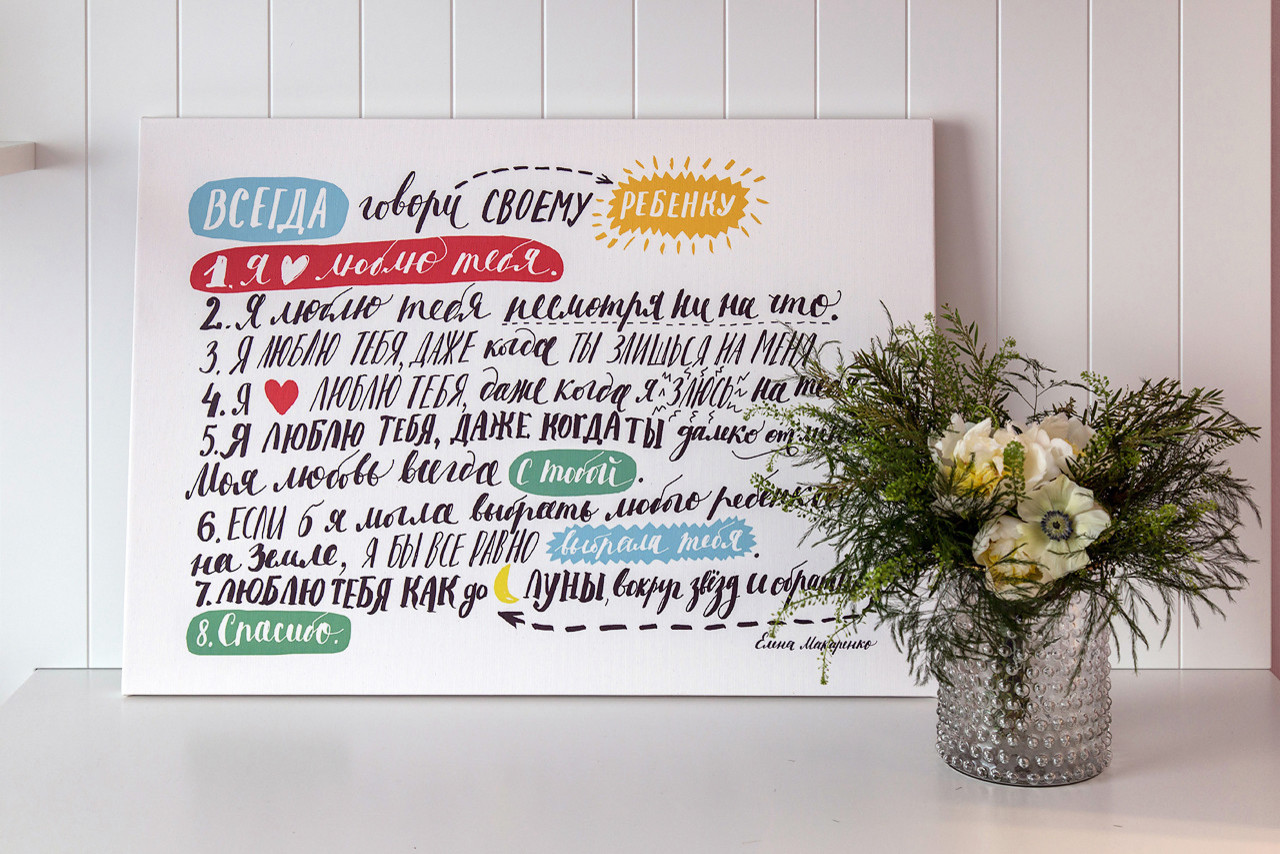 ВСЕГДА говори СВОЕМУ РЕБЕНКУ
1. Я люблю тебя.
2. Я люблю тебя несмотря ни на что.
3. Я ЛЮБЛЮ ТЕБЯ, ДАЖЕ когда ТЫ ЗЛИШЬСЯ НА МЕНЯ
4. Я ЛЮБЛЮ ТЕБЯ, даже когда я ЗЛЮСЬ на
5. Я ЛЮБЛЮ ТЕБЯ, ДАЖЕ КОГДА ТЫ далеко от
Моя любовь всегда с тобой.
6. ЕСЛИ б я могла выбрать любого ребенка
на Земле, Я БЫ ВСЕ РАВНО выбрала тебя.
7. ЛЮБЛЮ ТЕБЯ КАК до ЛУНЫ, вокруг звёзд и
8. Спасибо.
Елена Макаренко